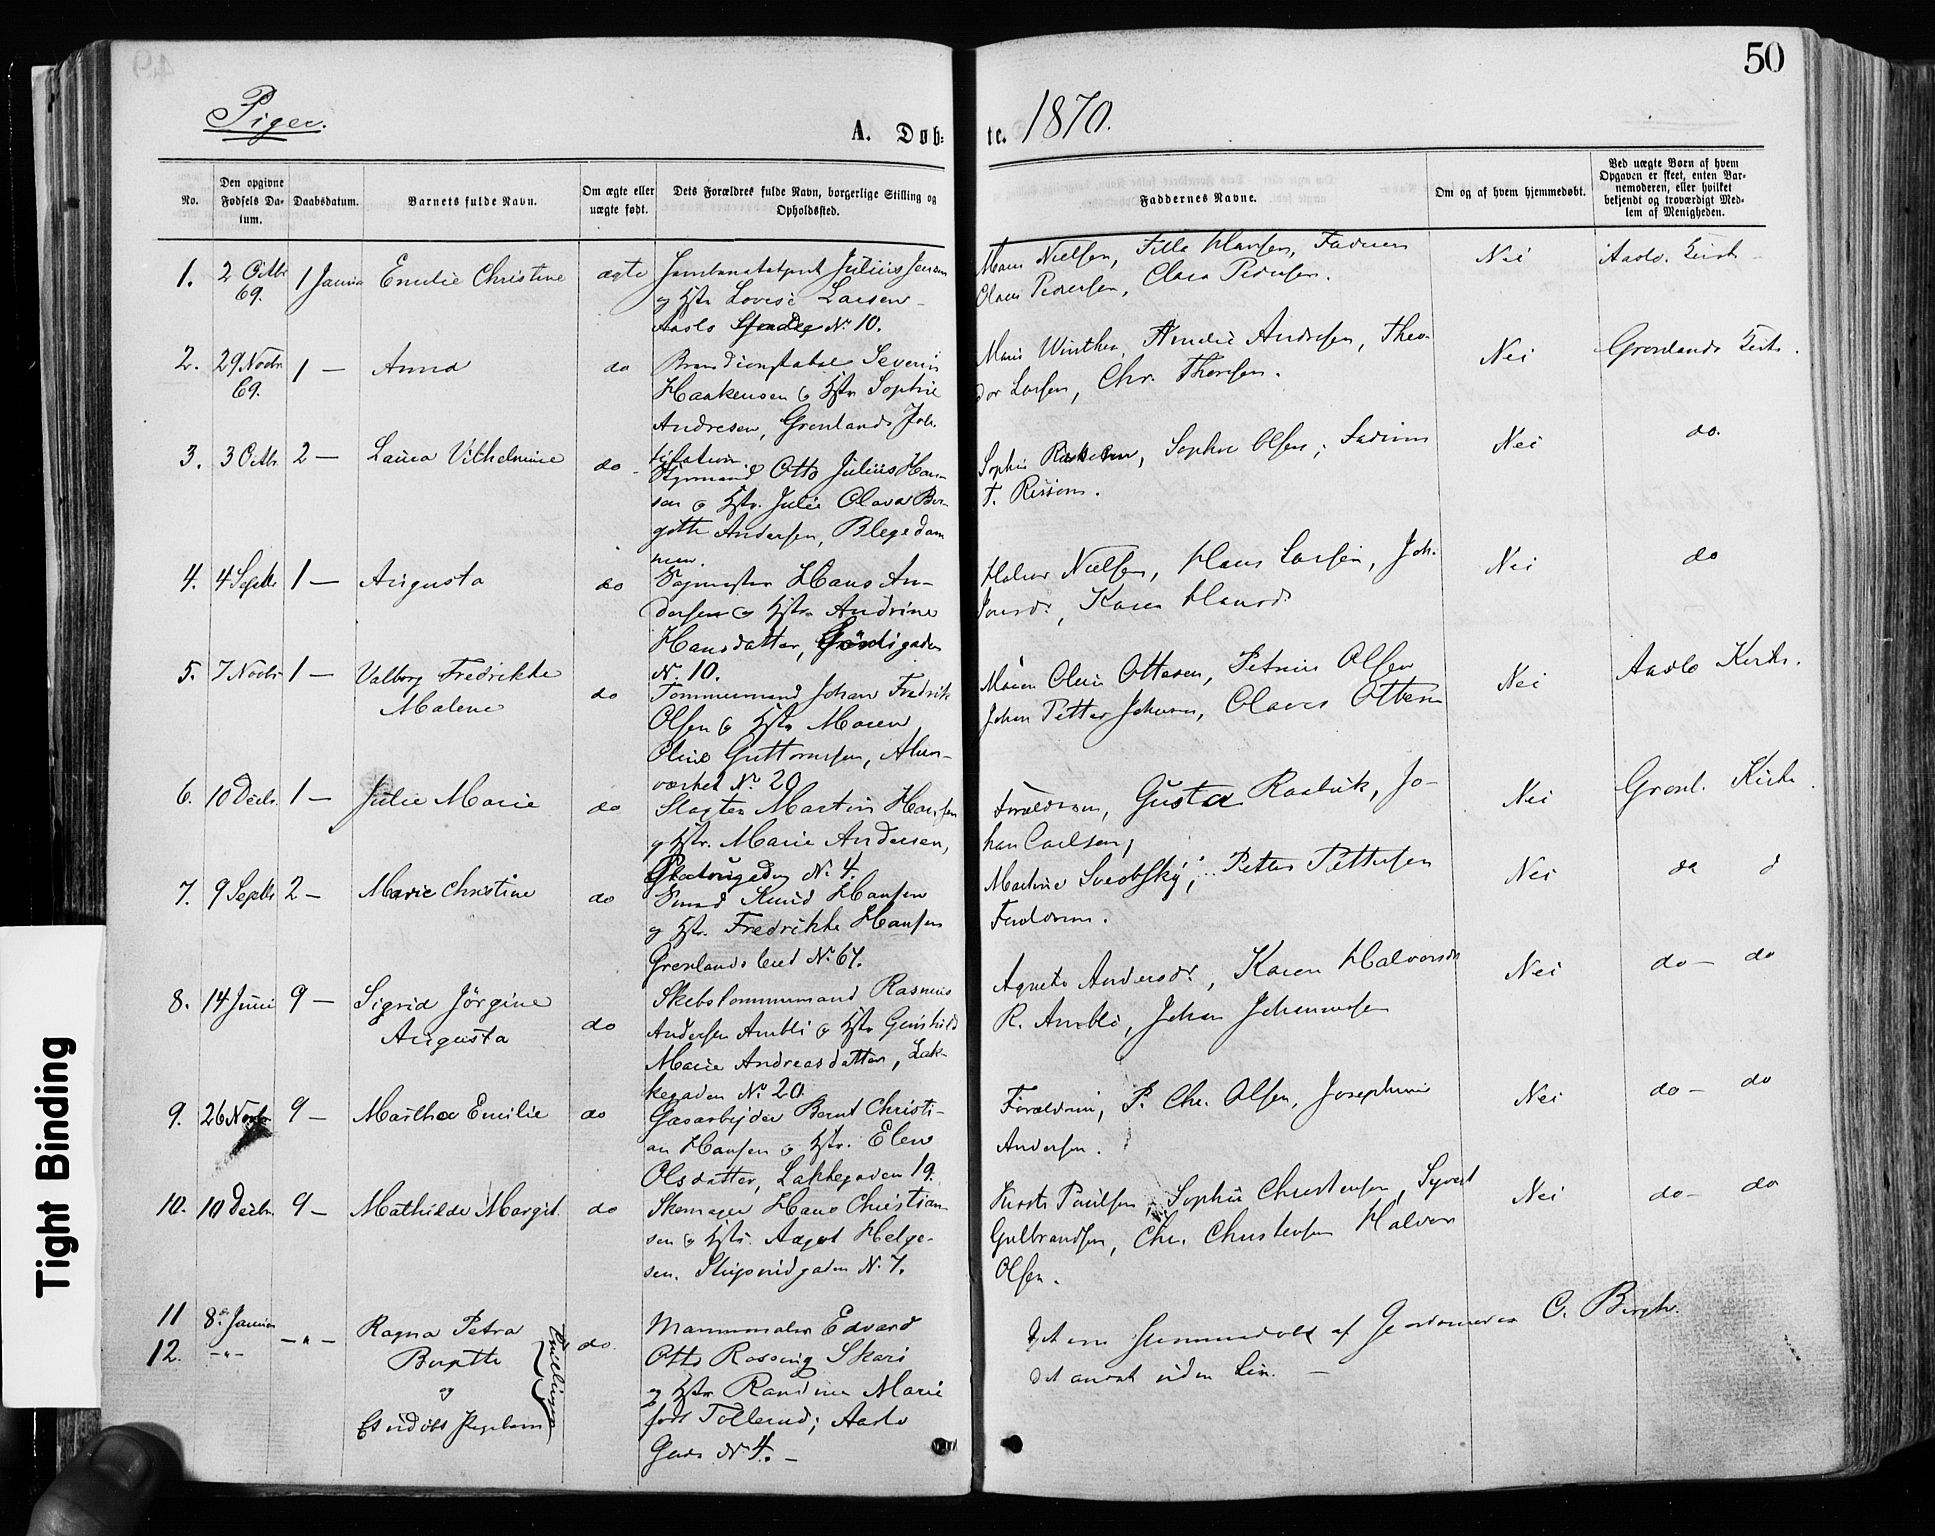 50
Piger.
A. Døb-
te. 1870.
No.
Den opgivne
Fødsels Da-
tum.
Daabsdatum.
Barnets fulde Navn.
Om ægte eller
uægte født.
Dets Forældres fulde Navn, borgerlige Stilling og
Opholdssted.
Faddernes Navne.
Om og af hvem hjemmedøbt.
Ved uægte Børn af hvem
Opgaven er skeet, enten Bar-
nemoderen, eller hvilket
bekjendt og troværdigt Med-
lem af Menigheden.
1. 2 Octbr 69. 1 Januar Emilie Christine ægte
Julius Jensen
og Hstr Lovise Larsen
Aaslo No 10.
Maren Nielsen, Hansen,
Claus Pedersen, Clara Pedersen.
Nei
Aaslo
2. 29 Novbr 69. 1 — Anna do
Brandconstabel Severin
Haakensen og Hstr Sophie
Andresen, Grønlands
Maris Winther, Amalie Andresen, Theo-
dor Larsen, Chr. Thoresen.
Nei
Grønlands Kirke.
3. 3 Octbr. 2 — Laura Vilhelmine do
Otto Julius Han-
sen og Hstr. Julie Olava Ber-
gitte Andersen, Blegedam
men.
Sophie Olsen,
Nei
do.
4. 4 Septbr 1 — Augusta do
Hans An-
dersen og Hstr Andrine
Hansdatter,
No 10.
Nielsen, Hans Larsen, Joh.
Karen Hansdr
Nei
do
5. 7 Novbr 1 — Valborg Fredrikke
Malene do
Tømmermand Johan Fredrik
Olsen og Hstr Maren
Oline Guttormsen, Alun-
værket No 20
Maren Oline Ottesen, Petrine Olsen
Johan Petter Johnsen, Olaves Ottesen
Nei
Aaslo Kirke.
6. 10 Decbr. 1 — Julie Marie do
Slagter Martin Hansen
og Hstr. Marie Andersen,
No 4.
Forældrene, Gusta Jo-
han Carlsen,
Nei
Grønl. Kirke
7. 9 Septbr 2 — Marie Christine do
Smed Knud Hansen
og Hstr. Fredrikke Hansen
Grønlands leret No 67.
Martine Petter Pettersen
Nei
do d
8. 14 Juni 9 — Sigrid Jørgine
Augusta do
Skibstømmermand Rasmus
Andersen Ambli og Hstr Gunhild
Marie Andreasdatter, Lak-
kegaden No 20
Agnete Andersdr, Karen Halvorsdr
R. Amble, Johan Johannesen
Nei
do — do
9. 26 Novbr 9 — Martha Emilie do
Gasarbeider Bernt Christi-
an Hansen og Hstr. Elen
Olsdatter, Lakkegaden 19.
Forældrene, P. Chr. Olsen, Josephine
Andersen.
Nei
do — do
10. 10 Decbr. 9 — Mathilde Margit. do
Skomager Hans Christian-
sen og Hstr. Aagot Helge-
sen. No 7.
Poulsen, Sophie Christensen, Syvert
Gulbrandsen, Chr. Christensen Halvor
Olsen.
Nei
do — do
11 8de Januar
12. —"— —"— Ragna Petra
Birgitte
og
Et udøbt Pigebarn
Tvillinger
do.
Edvard
Otto Rossing Skari
og Hstr Randine Marie
født Tollerud; Aaslo
Gade No 4. —
det ene hjemmedøbt af Jordmoder C. Bergh.
det andet uden Liv. —
Tight Binding